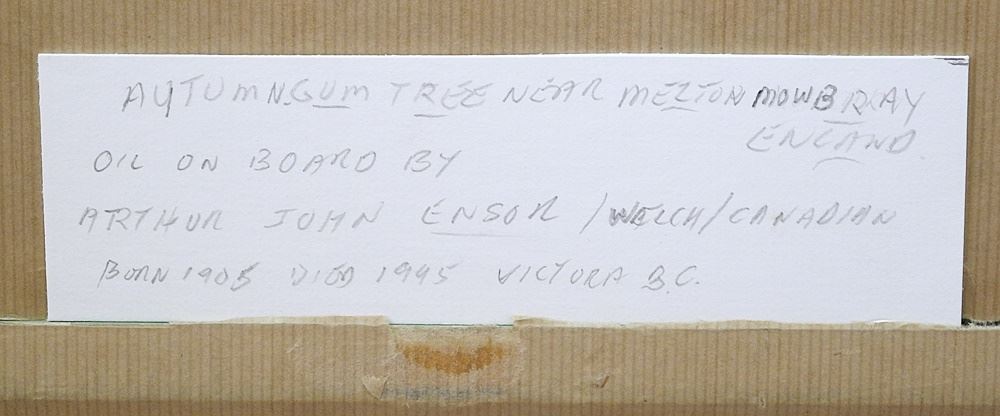 AUTUMN GUM TREE NEAR MELTON MOWBRAY
ENGLAND.
OIL ON BOARD BY
ARTHUR JOHN ENSOR /WELCH/CANADIAN
BORN 1905 DIED 1995 VICTORA B.C.